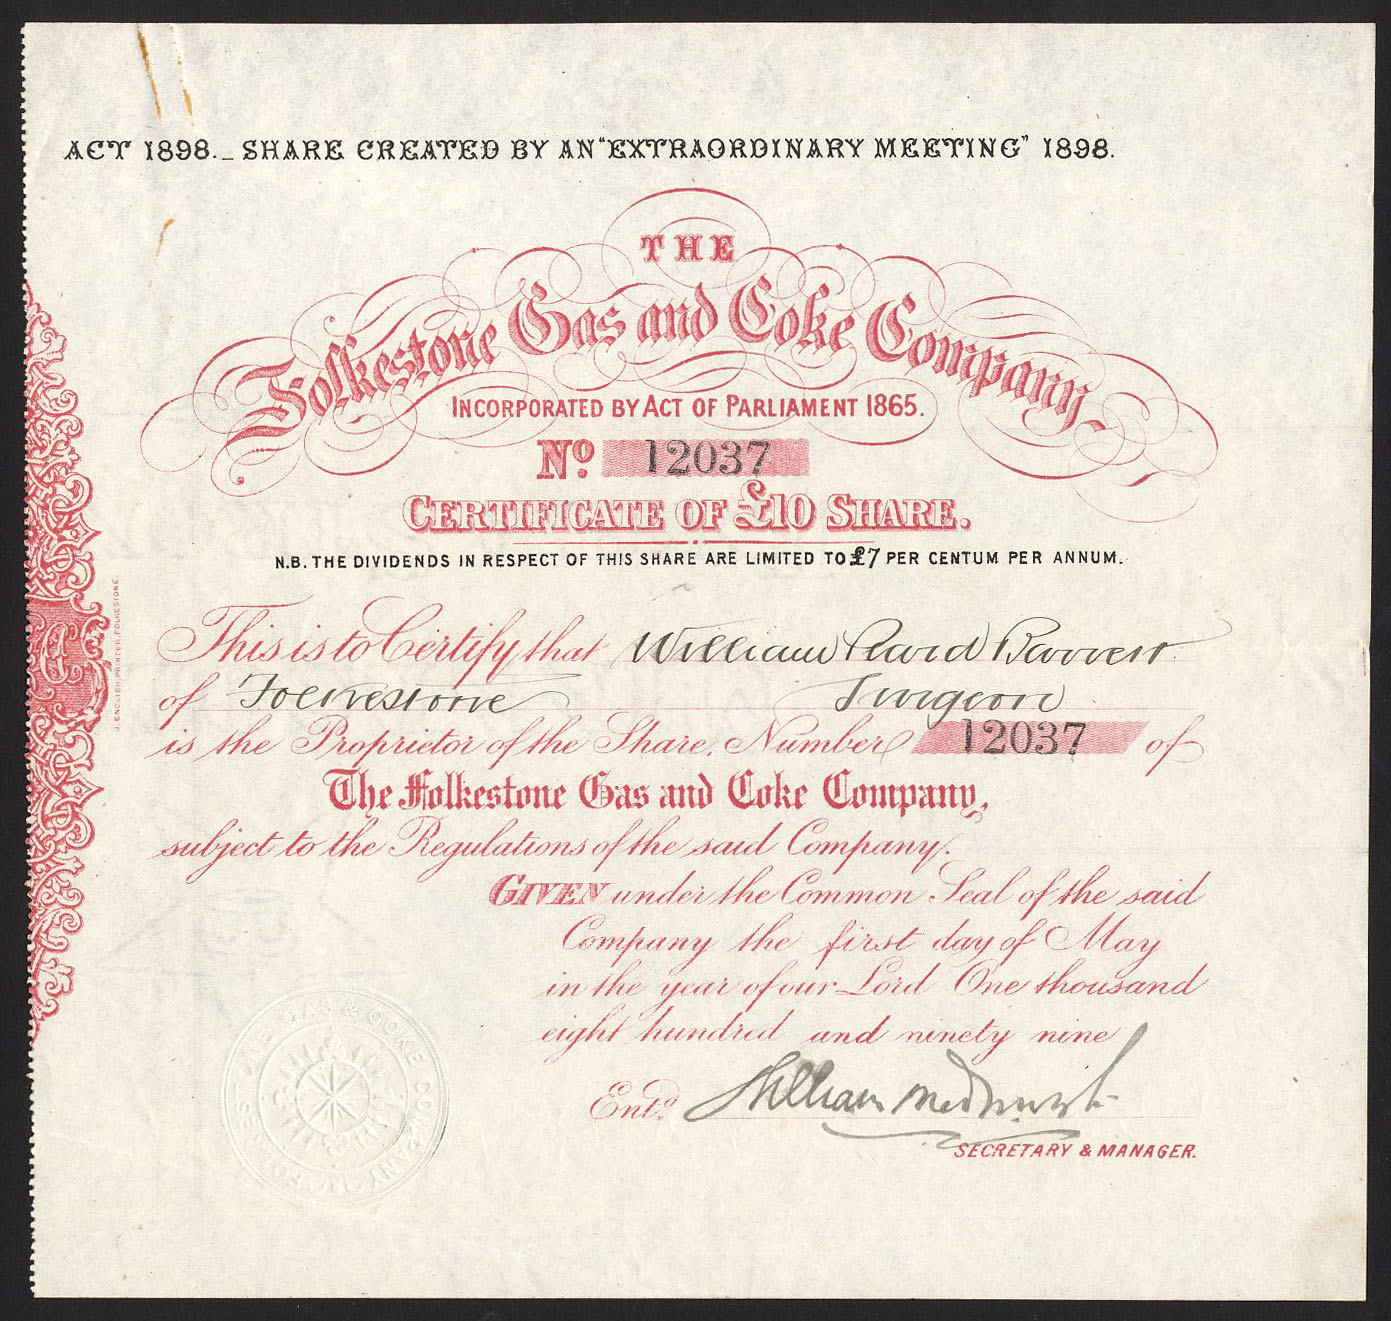 ACT 1898._ SHARE CREATED BY AN "EXTRAORDINARY MEETING" 1898.
THE
Folkestone Gas and Coke Company,
INCORPORATED BY ACT OF PARLIAMENT 1865.
No. 12037
CERTIFICATE OF £10 SHARE.
N.B. THE DIVIDENDS IN RESPECT OF THIS SHARE ARE LIMITED TO £7 PER CENTUM PER ANNUM.
This is to Certify that William Barrett
of Folkestone Surgeon
is the Proprietor of the Share, Number 12037 of
The Folkestone Gas and Coke Company,
subject to the Regulations of the said Company.
GIVEN under the Common Seal of the said
Company the first day of May
in the year of our Lord One thousand
eight hundred and ninety nine
Entd. William
SECRETARY & MANAGER.
J. ENGLISH, PRINTER, FOLKESTONE.
FOLKESTONE GAS & COKE COMPANY